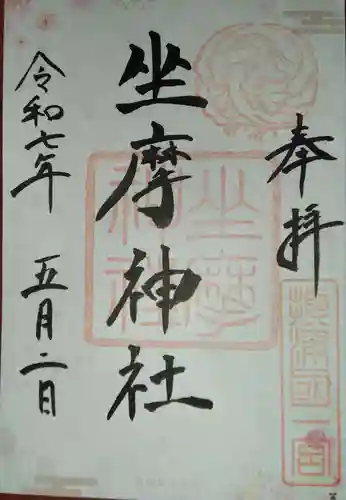 奉拝
摂津国一宮
坐摩神社
坐摩神社
令和七年 五月二日